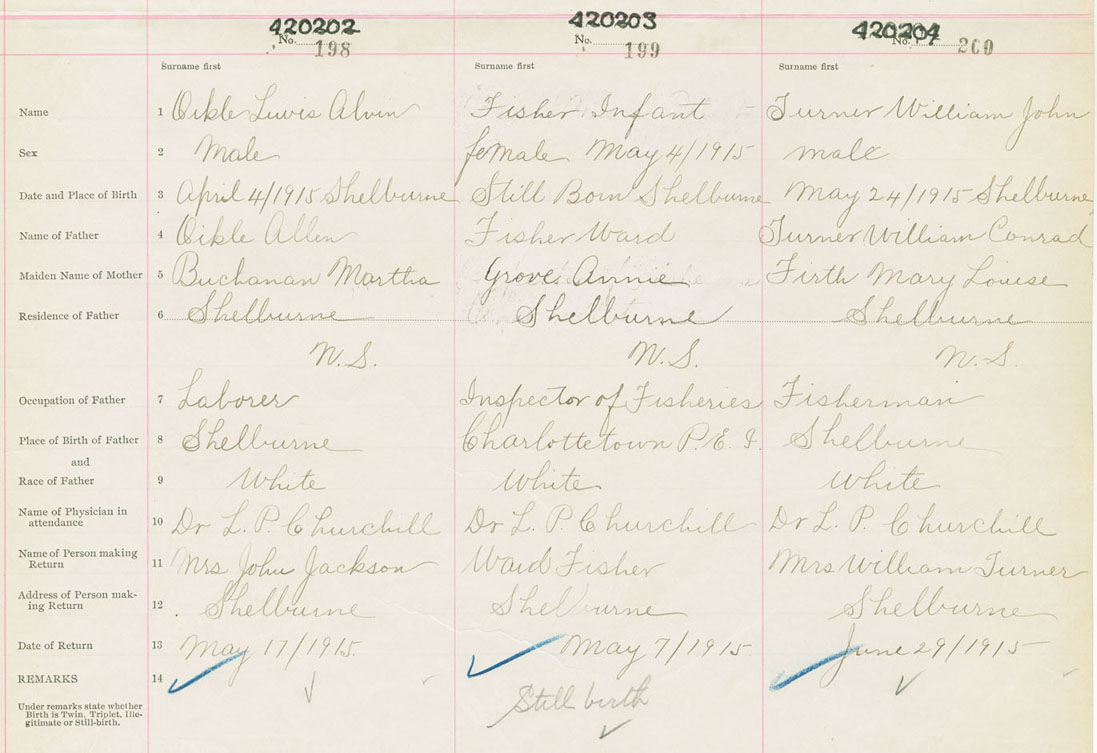 420202 420203 420204
No. 198 No. 199 No. 200
Surname first Surname first Surname first
Name 1 Oikle Lewis Alvin Fisher Infant Turner William John
Sex 2 Male female May 4/1915 male
Date and Place of Birth 3 April 4/1915 Shelburne Still Born Shelburne May 24/1915 Shelburne
Name of Father 4 Oikle Allen Fisher Ward Turner William Conrad
Maiden Name of Mother 5 Buchanan Martha Grove Annie Firth Mary Louise
Residence of Father 6 Shelburne Shelburne Shelburne
N.S. N.S. N.S.
Occupation of Father 7 Laborer Inspector of Fisheries Fisherman
Place of Birth of Father 8 Shelburne Charlottetown P.E.I. Shelburne
and
Race of Father 9 White White White
Name of Physician in
attendance 10 Dr L. P. Churchill Dr L. P. Churchill Dr L. P. Churchill
Name of Person making
Return 11 Mrs John Jackson Ward Fisher Mrs William Turner
Address of Person mak-
ing Return 12 Shelburne Shelburne Shelburne
Date of Return 13 May 17/1915. May 7/1915 June 29/1915
REMARKS 14
Still birth
Under remarks state whether
Birth is Twin, Triplet, Ille-
gitimate or Still-birth.